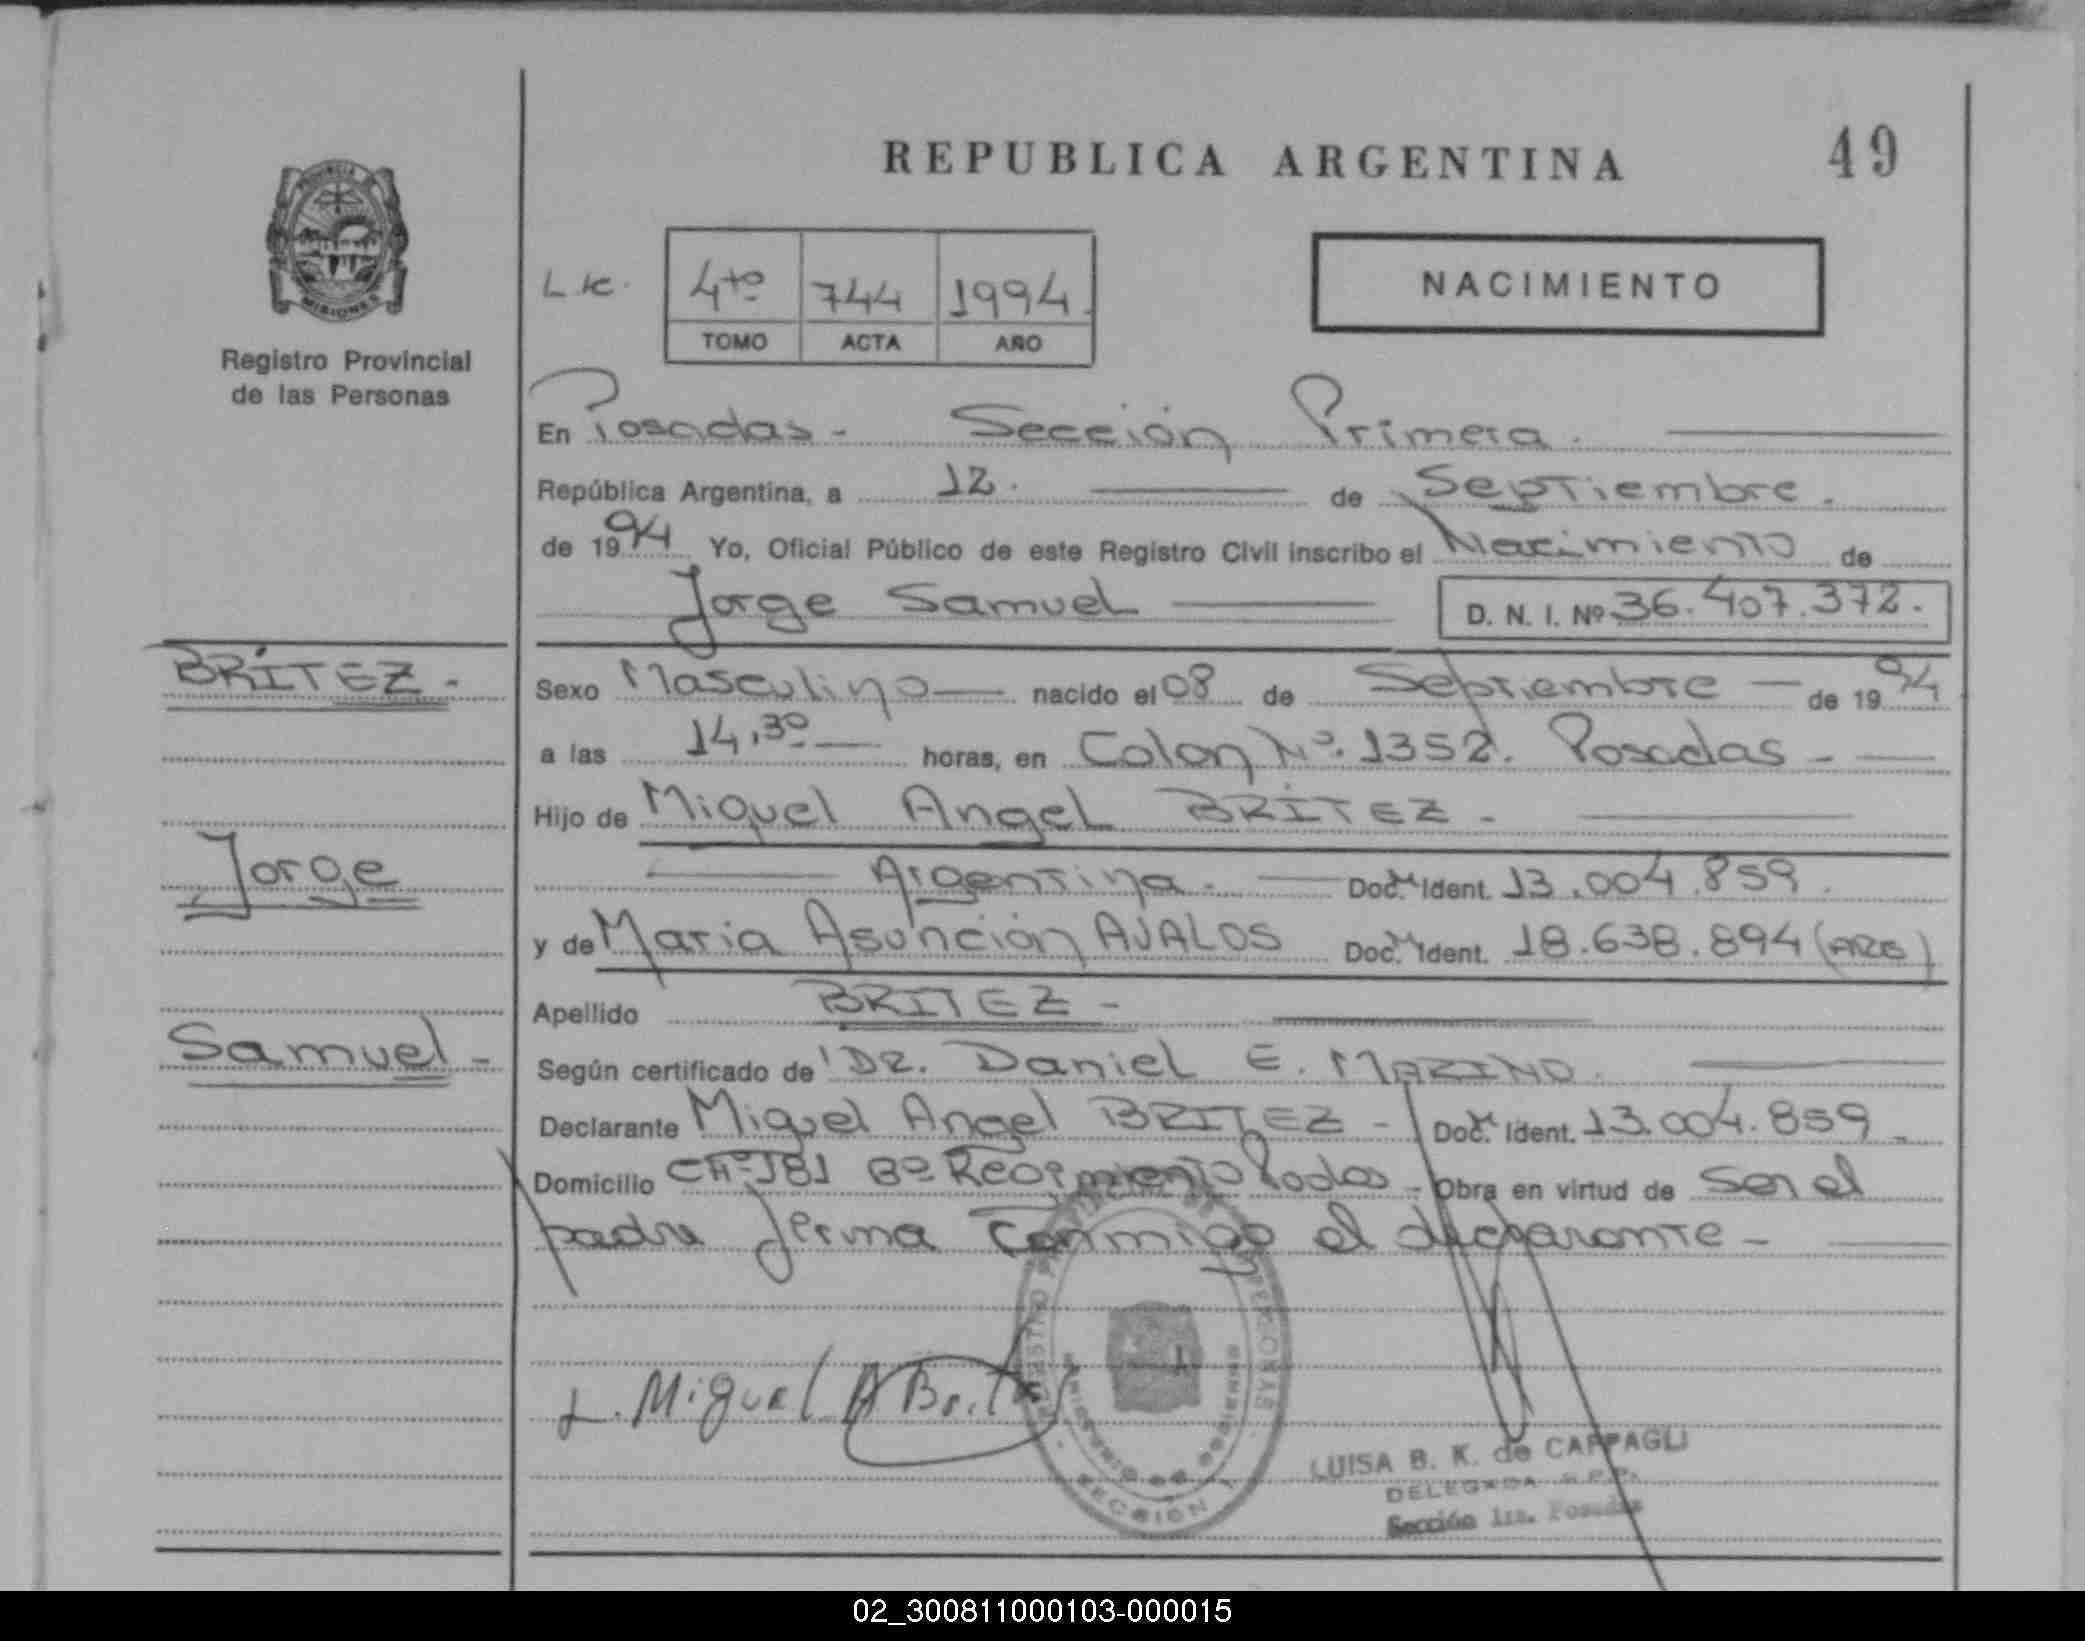 REPUBLICA ARGENTINA
49
PROVINCIA DE
MISIONES
Registro Provincial
de las Personas
4to 744 1994.
TOMO ACTA AÑO
NACIMIENTO
En Posadas - Sección Primera.
República Argentina, a 12. de Septiembre.
de 1994 Yo, Oficial Público de este Registro Civil inscribo el Nacimiento de
Jorge Samuel
D. N. I. Nº 36.407.372.
BRÍTEZ -
Sexo Masculino nacido el 08 de Septiembre de 1994
a las 14,30 horas, en Colon Nº. 1352. Posadas -
Hijo de Miguel Angel BRÍTEZ -
Jorge
Argentina. Doc. Ident. 13.004.859.
y de Maria Asunción AVALOS Doc. Ident. 18.638.894 (ARG)
Apellido BRITEZ -
Samuel -
Según certificado de DR. Daniel E. MARINO.
Declarante Miguel Angel BRITEZ - Doc. Ident. 13.004.859
Domicilio 181 Bº Posadas - Obra en virtud de Ser el
padre firma conmigo el declarante -
Miguel A Brit
SECCIÓN 1
LUISA B. K. de CAPPAGLI
DELEGADA R.P.P.
Sección 1ra. Posadas
02_300811000103-000015